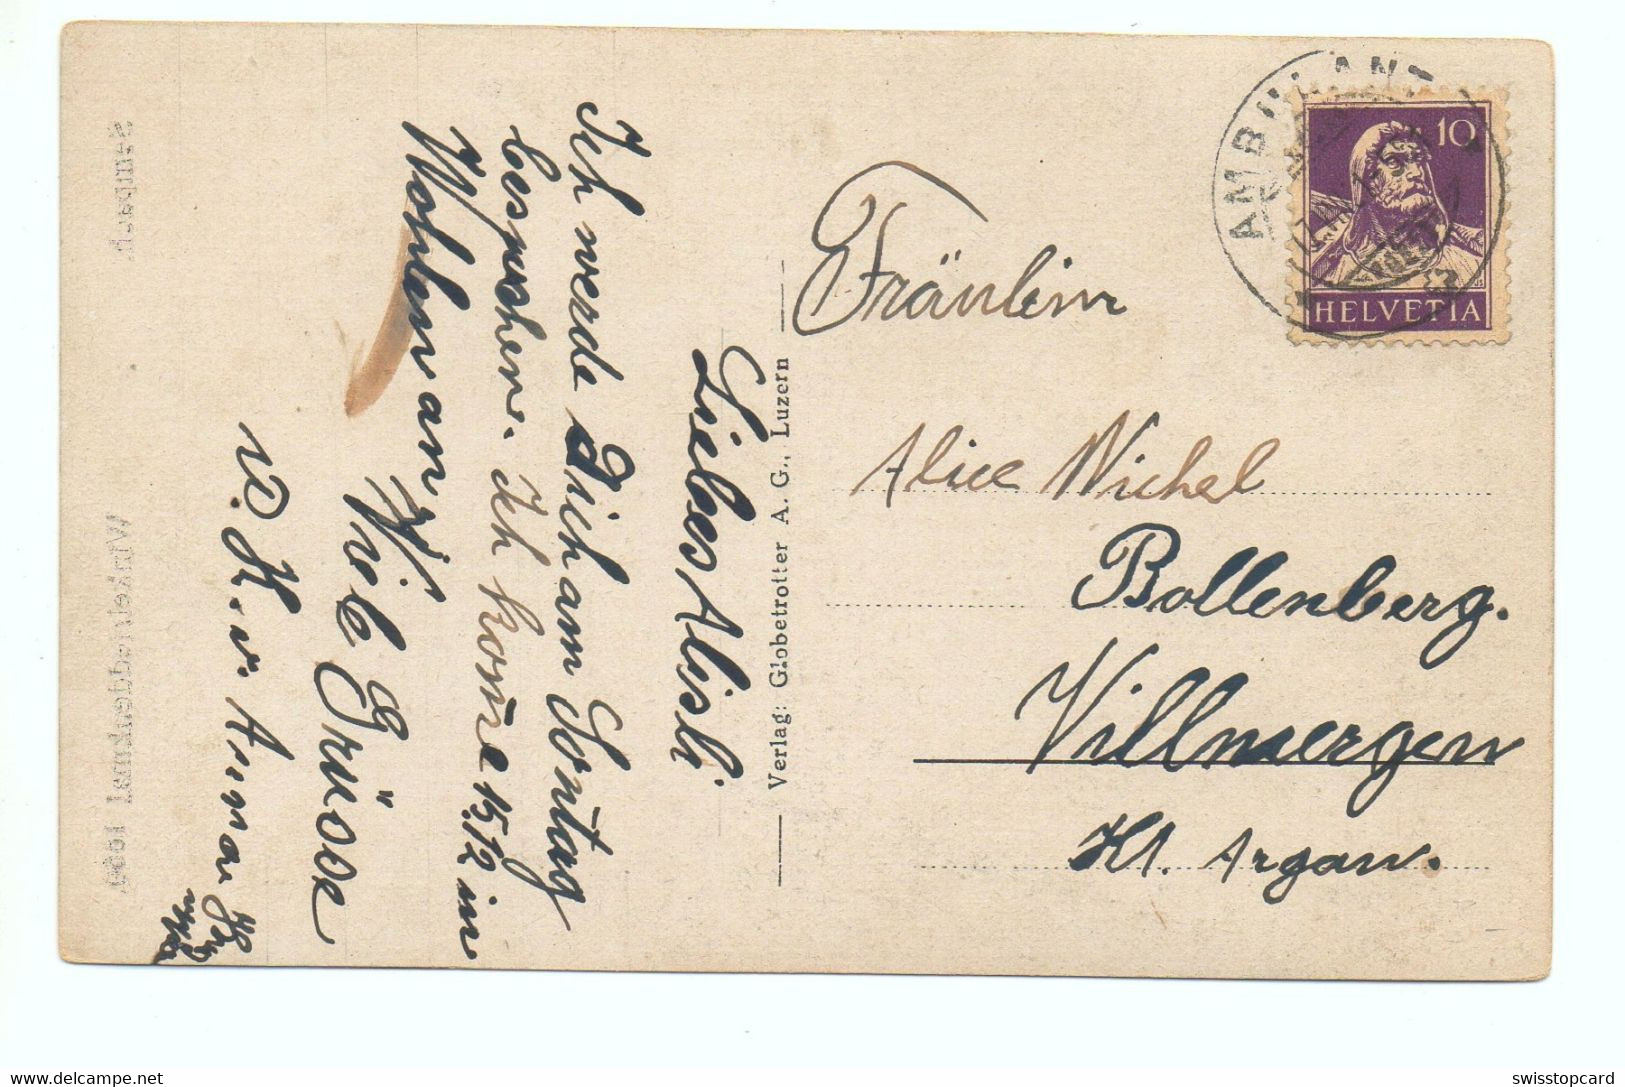 Liebes Alisli
Ich werde Dich am Sontag
besuchen. Ich kome 15.12 in
Wohlen an.
Viele Grüsse
v. K. v. Anna
Verlag: Globetrotter A. G., Luzern
AMBULANT
10
HELVETIA
Fräulein
Alice Michel
Bollenberg.
Villmergen
Kt. Argau.
Sempach
Winkelrieddenkmal
swisstopcard